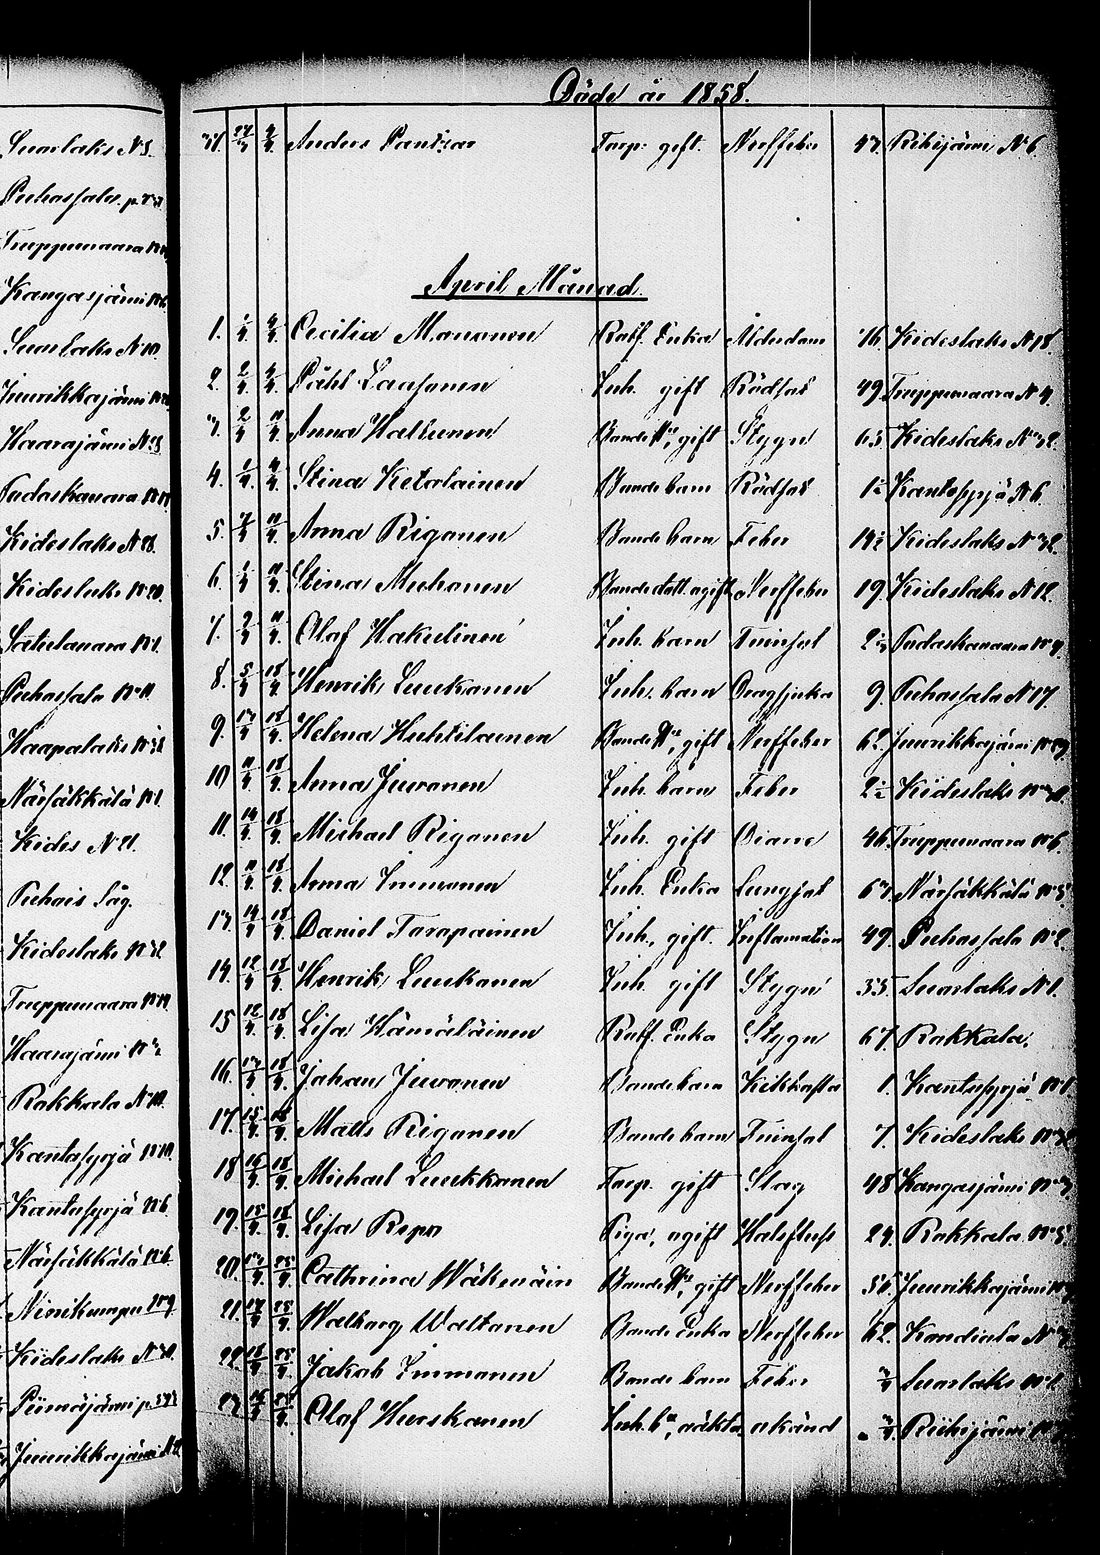 Suorlaks N 3.
Puhossalo p.
Truppumaara
Kangasjärvi
Suorlaks N 10.
Juurikkajärvi
Haarajärvi N
Padaskavaara
Kideslaks N 28.
Kideslaks N 20.
Satulavaara N 1.
Puhossalo N 11.
Haapalaks N
Närsäkkälä N 1.
Kides N 21.
Puhois Såg.
Kideslaks N 32
Truppumaara
Haarajärvi N
Rokkala N
Kantosyrjä N 10.
Kantosyrjä N 6.
Närsäkkälä N 6.
Niinikumpu N 9.
Kideslaks N
Piimäjärvi p.
Juurikkajärvi N
Döde år 1858.
31. 27/3 4/4 Anders Pantzar Torp. gift. Nerffeber 47. Riihijärvi N 6.
April Månad.
1. 1/4 4/4 Cecilia Manonen Rotf. Enka Ålderdom 76. Kideslaks N 18.
2. 2/4 4/4 Påhl Laasonen Inh. gift Rödsot 49 Truppumaara N 4.
3. 2/4 11/4 Anna Hallunen Bonde H:u, gift Stygn 65 Kideslaks N 32.
4. 1/4 4/4 Stina Ketolainen Bonde barn Rödsot 1½ Kantosyrjä N 6.
5. 7/4 11/4 Anna Rigonen Bonde barn Feber 14½ Kideslaks N 32.
6. 1/4 11/4 Stina Muhonen Bonde dott. ogift Nerffeber 19. Kideslaks N 12.
7. 3/4 11/4 Olof Hakulinen Inh. barn Tvinsot 2 Padaskavaara N 9.
8. 5/4 18/4 Henrik Luukkonen Inh. barn Dragsjuka 9. Puhossalo N 17.
9. 13/4 18/4 Helena Huhtilainen Bonde H:u, gift Nerffeber 62. Juurikkajärvi N
10 11/4 18/4 Anna Juvonen Inh. barn Feber 2½ Kideslaks N
11. 14/4 18/4 Michael Rigonen Inh. gift Diarre 46. Truppumaara N 6.
12. 11/4 18/4 Anna Immonen Inh. Enka Lungsot 63. Närsäkkälä N 5.
13. 14/4 18/4 Daniel Torapainen Inh., gift. Inflamation 49. Puhossalo N 2.
14. 12/4 18/4 Henrik Luukkonen Inh. gift Stygn 55. Suorlaks N 1.
15 12/4 18/4 Lisa Hämäläinen Rotf. Enka Stygn 67. Rokkala.
16. 13/4 18/4 Johan Juvonen Bonde barn Kikhosta 1. Kantosyrjä N 1.
17. 15/4 18/4 Matts Rigonen Bonde barn Tvinsot 7. Kideslaks N
18 16/4 18/4 Michael Luukkonen Torp. gift Slag 48 Kangasjärvi N
19. 15/4 18/4 Lisa Repo Piga, ogift Halsfluss 24. Rokkala N 5.
20. 17/4 25/4 Cathrina Wäkeväin Bonde H:u, gift Nerffeber 56. Juurikkajärvi N
21. 17/4 25/4 Walborg Waltonen Bonde Enka Nerffeber 62. Kondiala N
22. 18/4 25/4 Jakob Immonen Bonde barn Feber Suorlaks N
23. 16/4 25/4 Olof Hurskanen Inh. b:n, oäkta okänd Riihijärvi N